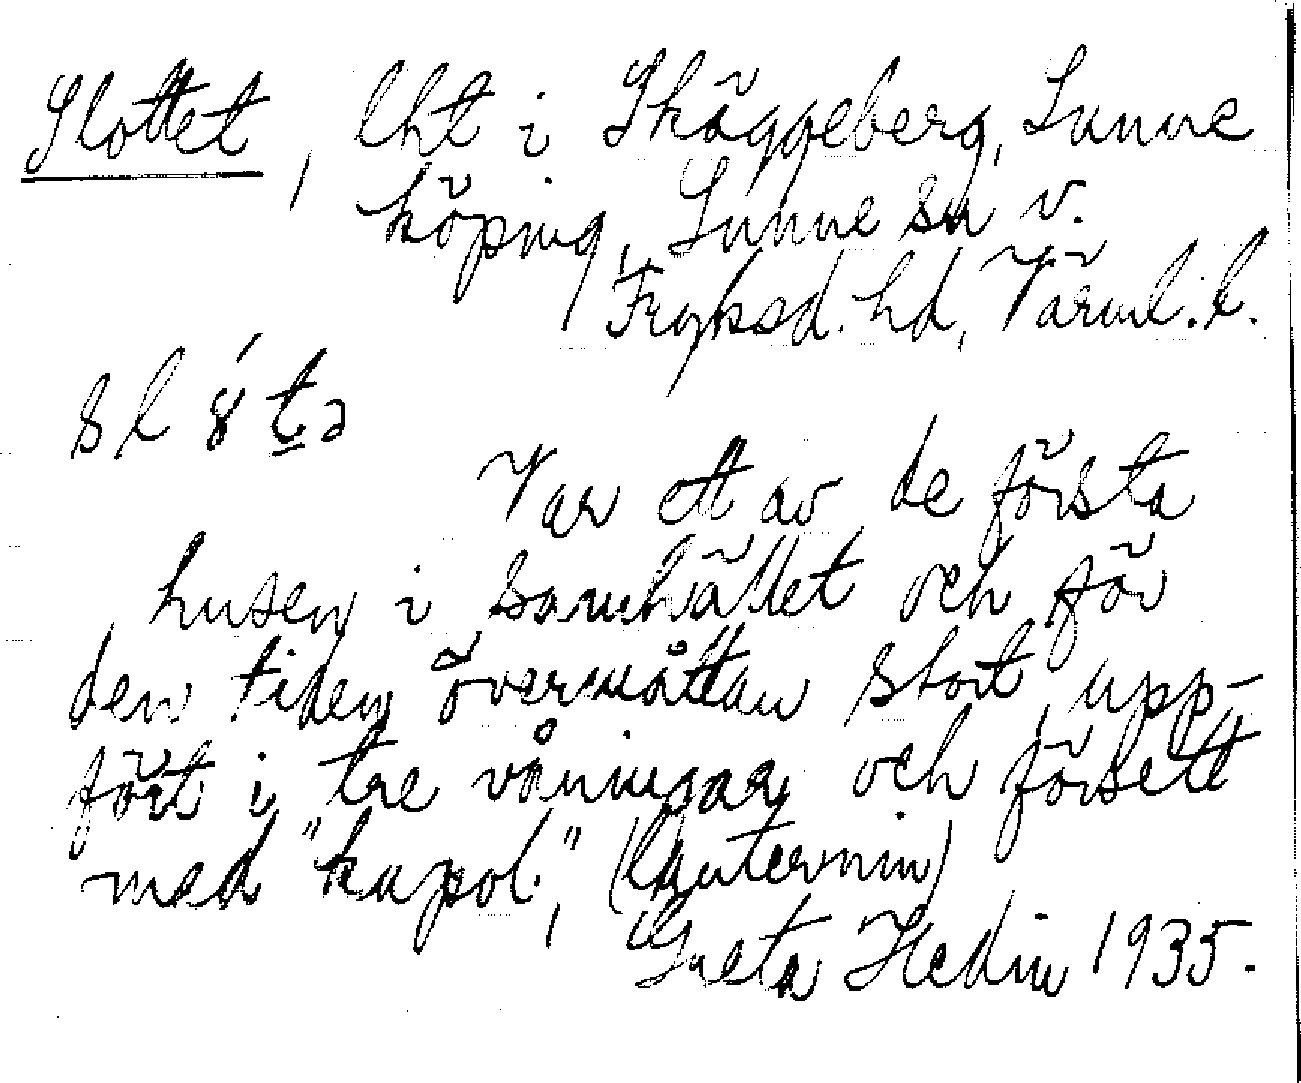 Slottet, lht i Skäggeberg, Sunne
köping, Sunne sn v.
Fryksd. hd, Värml. l.
sl ɤ́ t̲ə
Var ett av de första
husen i samhället och för
den tiden övermåttan stort, upp-
fört i tre våningar och försett
med "kupol", (lanternin)
Greta Hedin 1935.